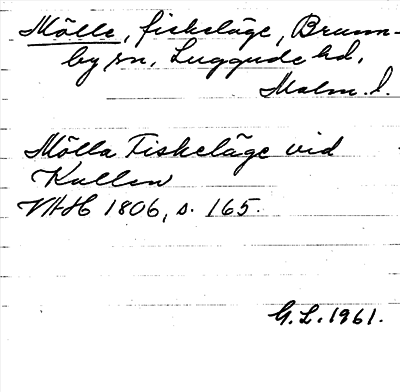 Mölle, fiskeläge, Brunn-
by sn, Luggude hd,
Malm. l.
Mölla Fiskeläge vid
Kullen
VHH 1806, s. 165.
G.L. 1961.